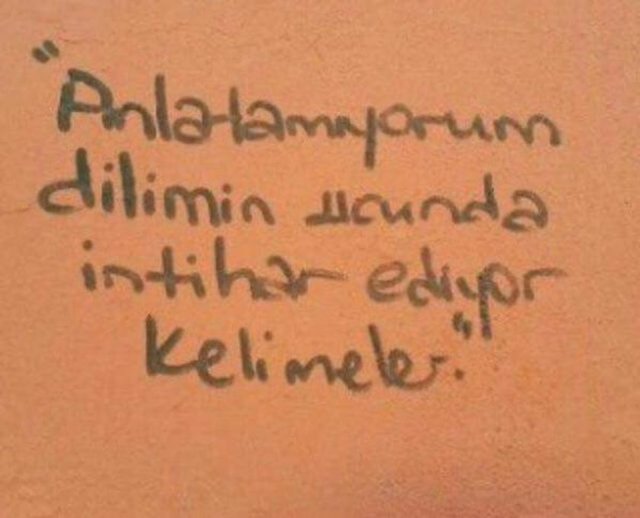 "Anlatamıyorum
dilimin ucunda
intihar ediyor
kelimeler."